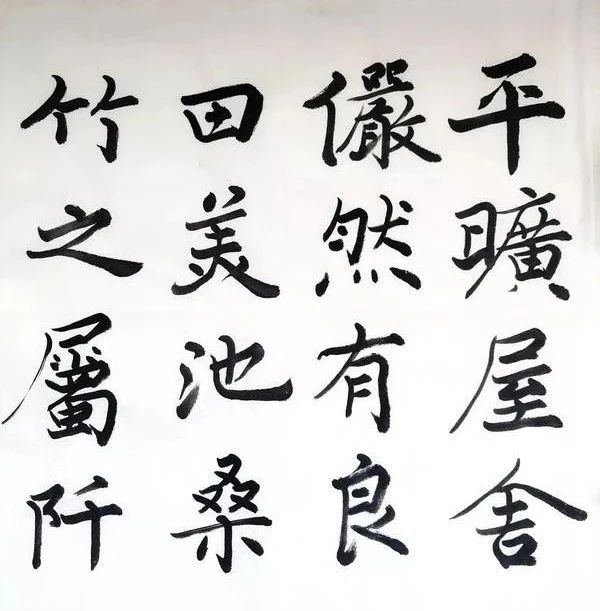 平曠屋舍
儼然有良
田美池桑
竹之屬阡